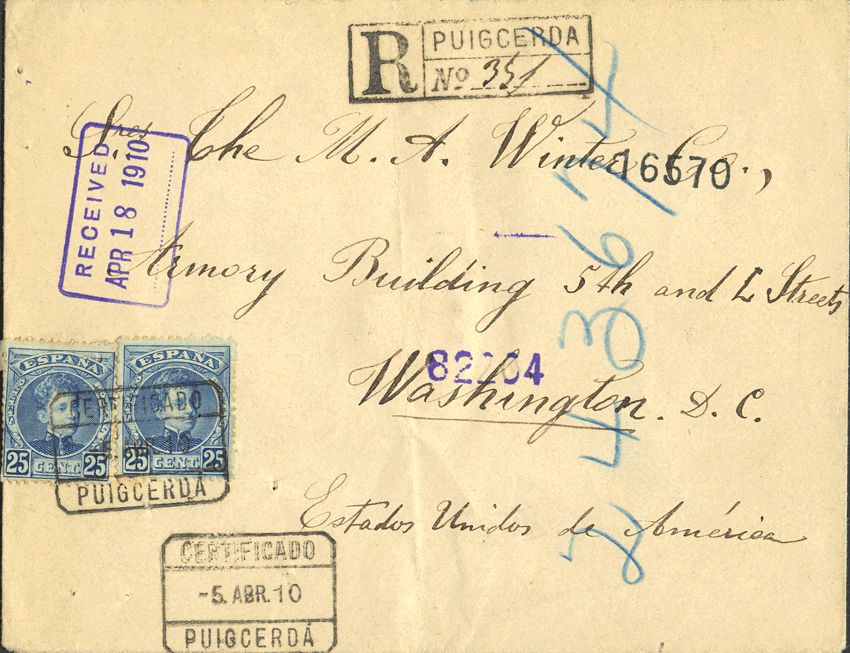 R PUIGCERDA
Nº 351
Sres The M. A. Winter Co.,
16570
RECEIVED
APR 18 1910
Armory Building 5th and L Streets
82264
Washington. D. C.
Estados Unidos de América
24367
ESPAÑA
25 CENT. 25
ESPAÑA
25 CENT. 25
CERTIFICADO
PUIGCERDÁ
CERTIFICADO
-5. ABR. 10
PUIGCERDÁ